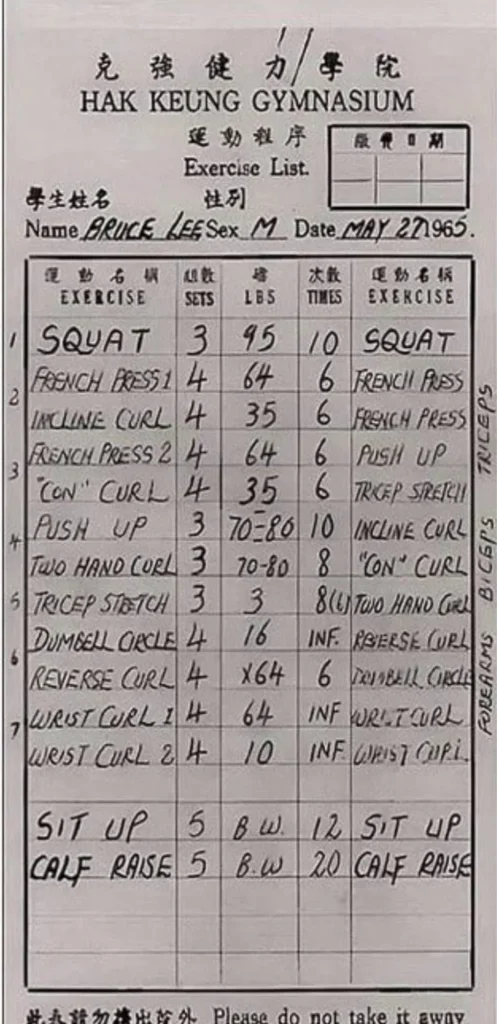 克強健力學院
HAK KEUNG GYMNASIUM
運動程序
Exercise List.
繳費日期
學生姓名 性別
Name BRUCE LEE Sex M Date MAY 27 1965.
運動名稱 組數 磅 次數 運動名稱
EXERCISE SETS LBS TIMES EXERCISE
1 SQUAT 3 95 10 SQUAT
2 FRENCH PRESS 1 4 64 6 FRENCH PRESS
INCLINE CURL 4 35 6 FRENCH PRESS
3 FRENCH PRESS 2 4 64 6 PUSH UP
"CON" CURL 4 35 6 TRICEP STRETCH
4 PUSH UP 3 70-80 10 INCLINE CURL
TWO HAND CURL 3 70-80 8 "CON" CURL
5 TRICEP STRETCH 3 3 8(6) TWO HAND CURL
DUMBELL CIRCLE 4 16 INF. REVERSE CURL
6 REVERSE CURL 4 x64 6 DUMBELL CIRCLE
7 WRIST CURL 1 4 64 INF WRIST CURL
WRIST CURL 2 4 10 INF. WRIST CURL
SIT UP 5 B.W. 12 SIT UP
CALF RAISE 5 B.W 20 CALF RAISE
TRICEPS
BICEPS
FOREARMS
請勿出院外 Please do not take it away